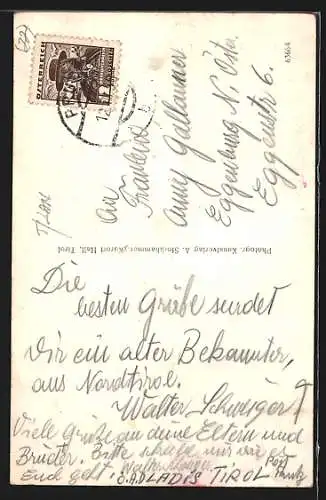 ÖSTERREICH
An
Fräulein
Anny Gallauner
Eggenburg N. Östr.
Eggenstr 6.
65654
Photogr. Kunstverlag A. Stockhammer, Kurort Hall, Tirol
Die
besten Grüße sendet
Dir ein alter Bekannter,
aus Nordtirol.
Walter Schwaiger
Viele Grüße an deine Eltern und
Bruder. Bitte schreibe mir wie es
Euch geht.
LADIS TIROL Post